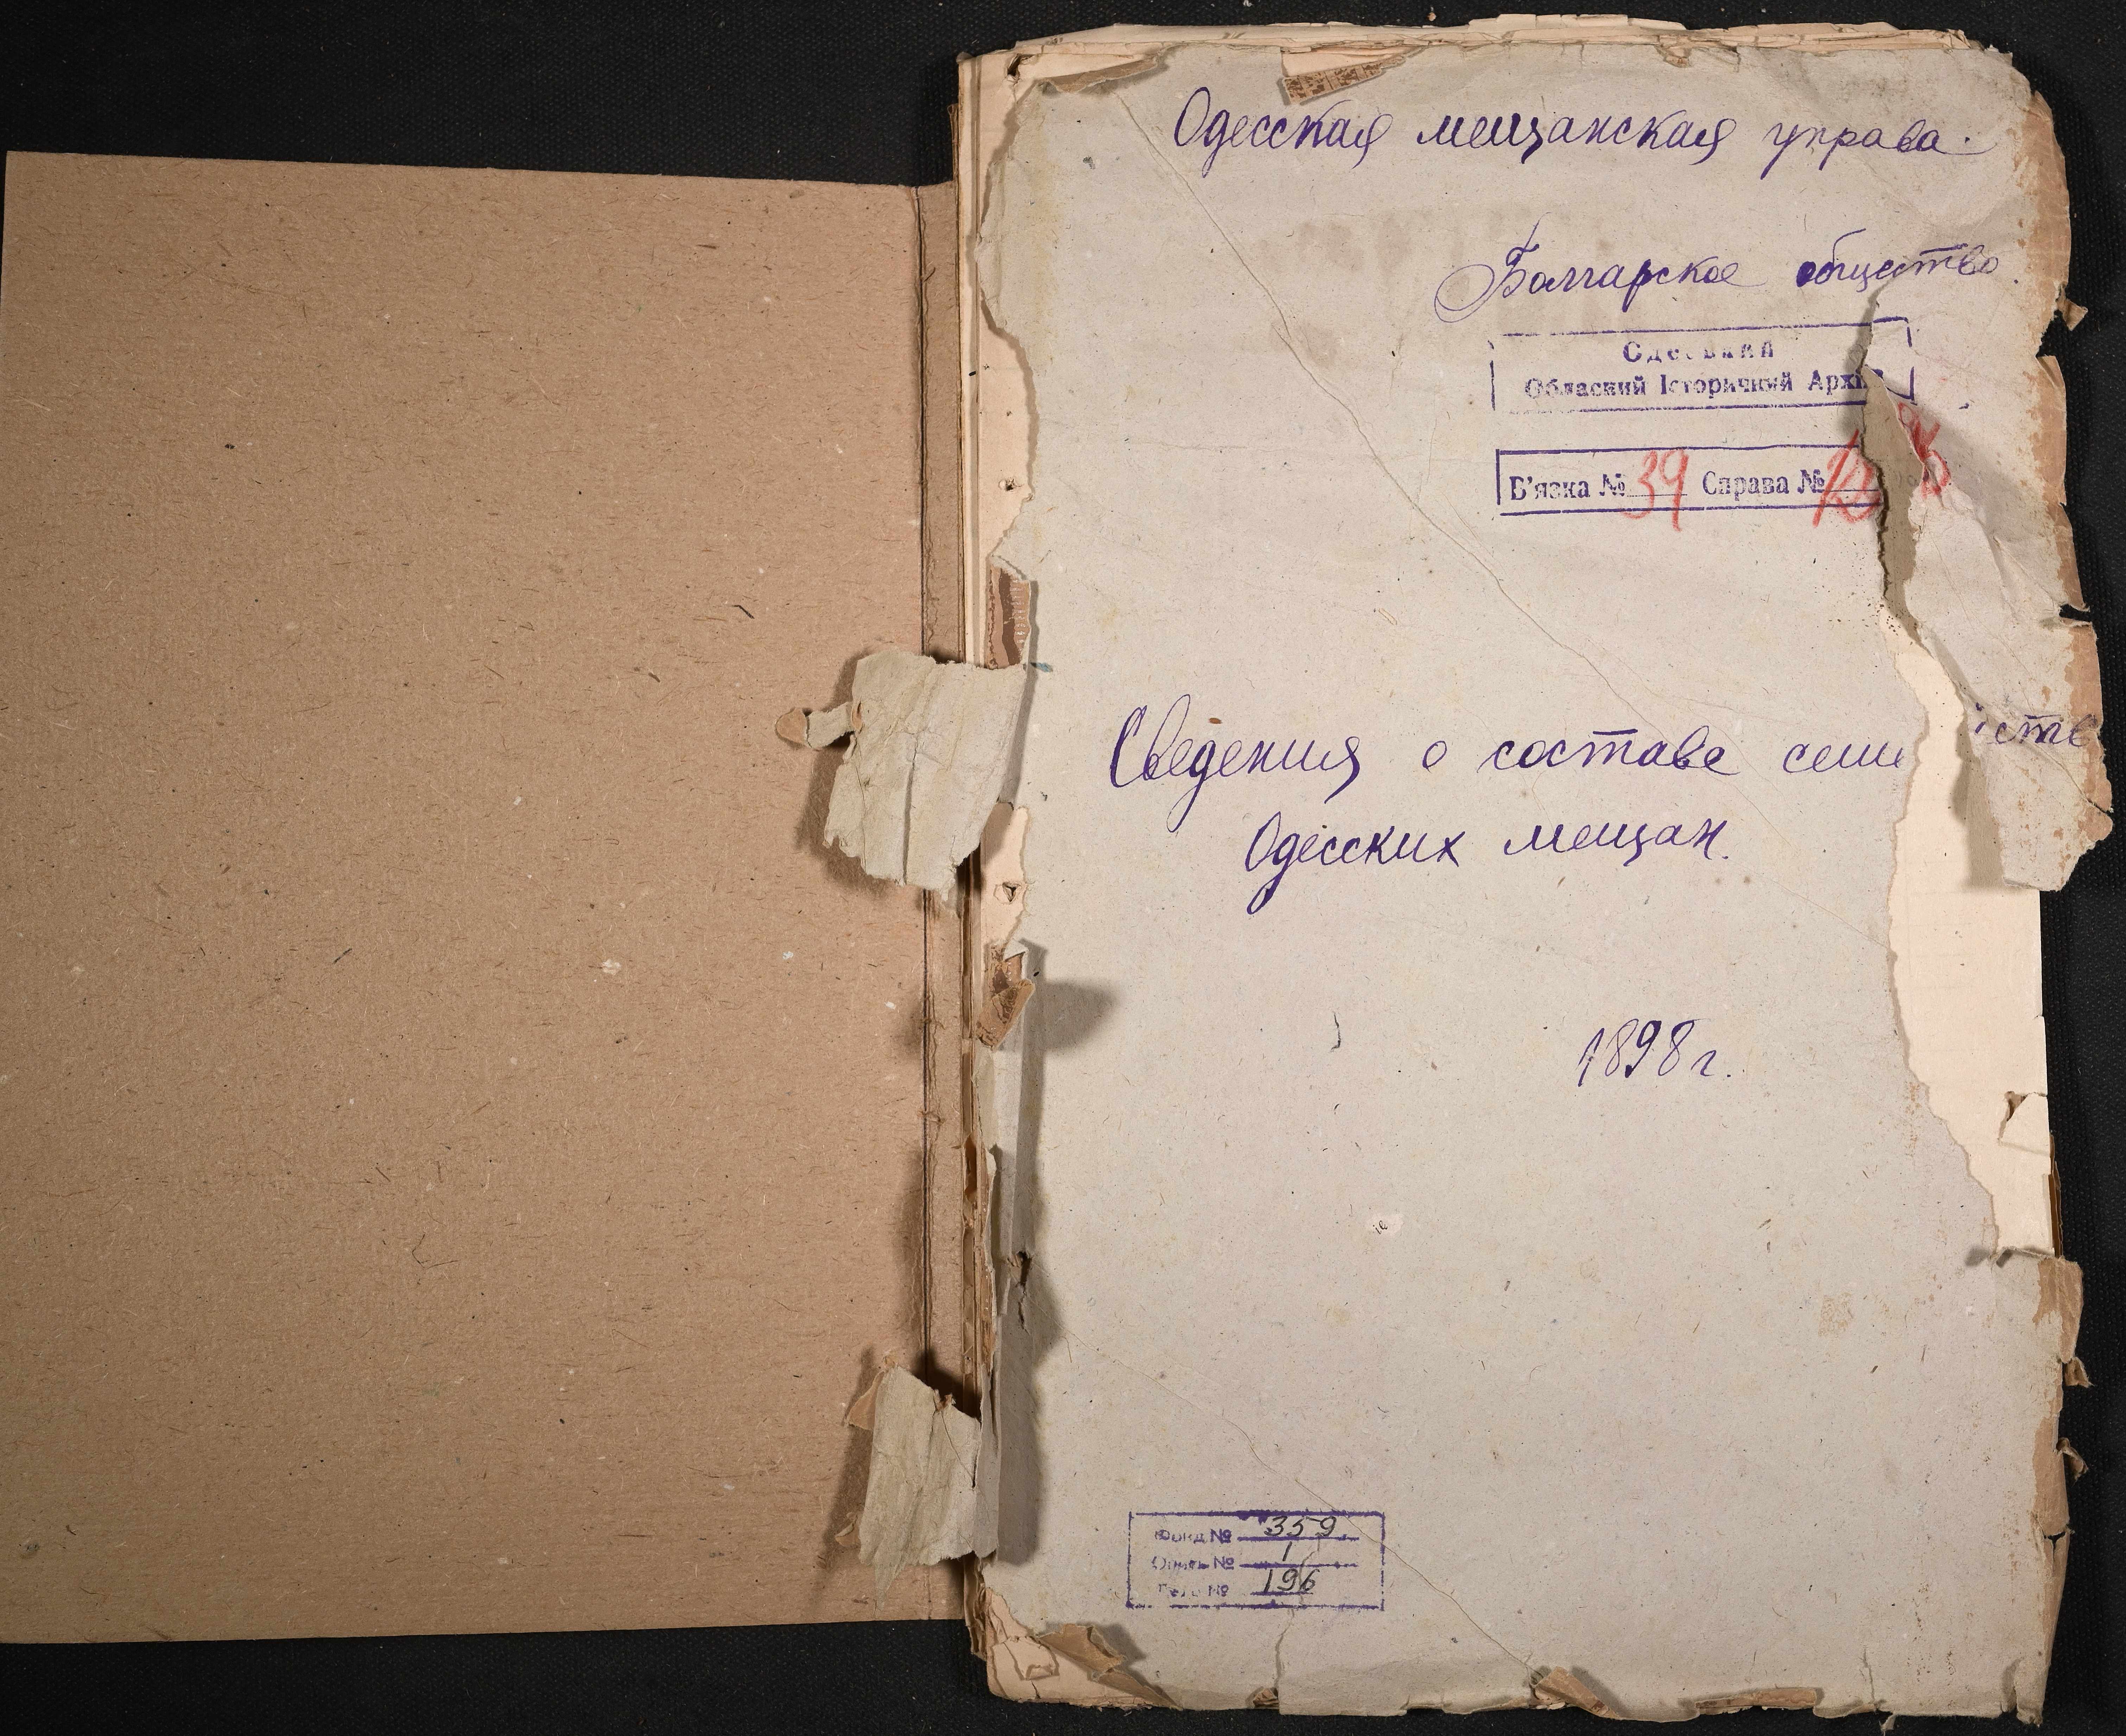 Одесская мещанская управа.
Болгарское общество
Одеський
Обласний Історичний Архів
В'язка № 39 Справа №
Сведения о составе семе йств
Одесских мещан.
1898 г.
Фонд № 359.
Опись № 1
Дело № 196